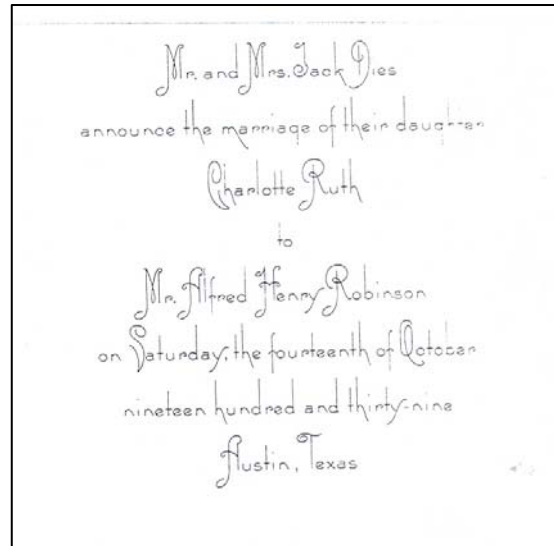 Mr. and Mrs. Jack Dies
announce the marriage of their daughter
Charlotte Ruth
to
Mr. Alfred Henry Robinson
on Saturday, the fourteenth of October
nineteen hundred and thirty-nine
Austin, Texas